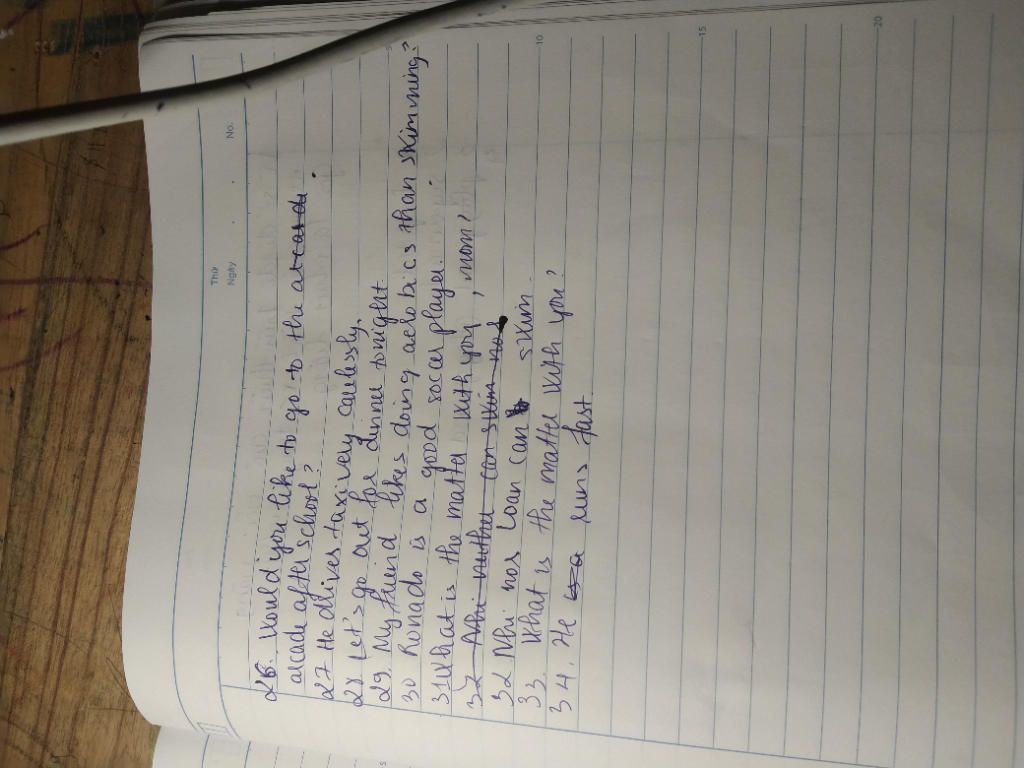 Thứ
Ngày
No.
26. Would you like to go to the arcards
arcade after school?
27 He drives taxi very carelessly.
28. Let's go out for dinner tonight
29. My friend likes doing aerobics than skimming?
30 Ronado is a good soccer player.
31 What is the matter with you, mom?
32 Nhi neither can swim nor
32 Nhi nor Loan can swim.
33. What is the matter with you?
34. He runs fast
5
10
15
20